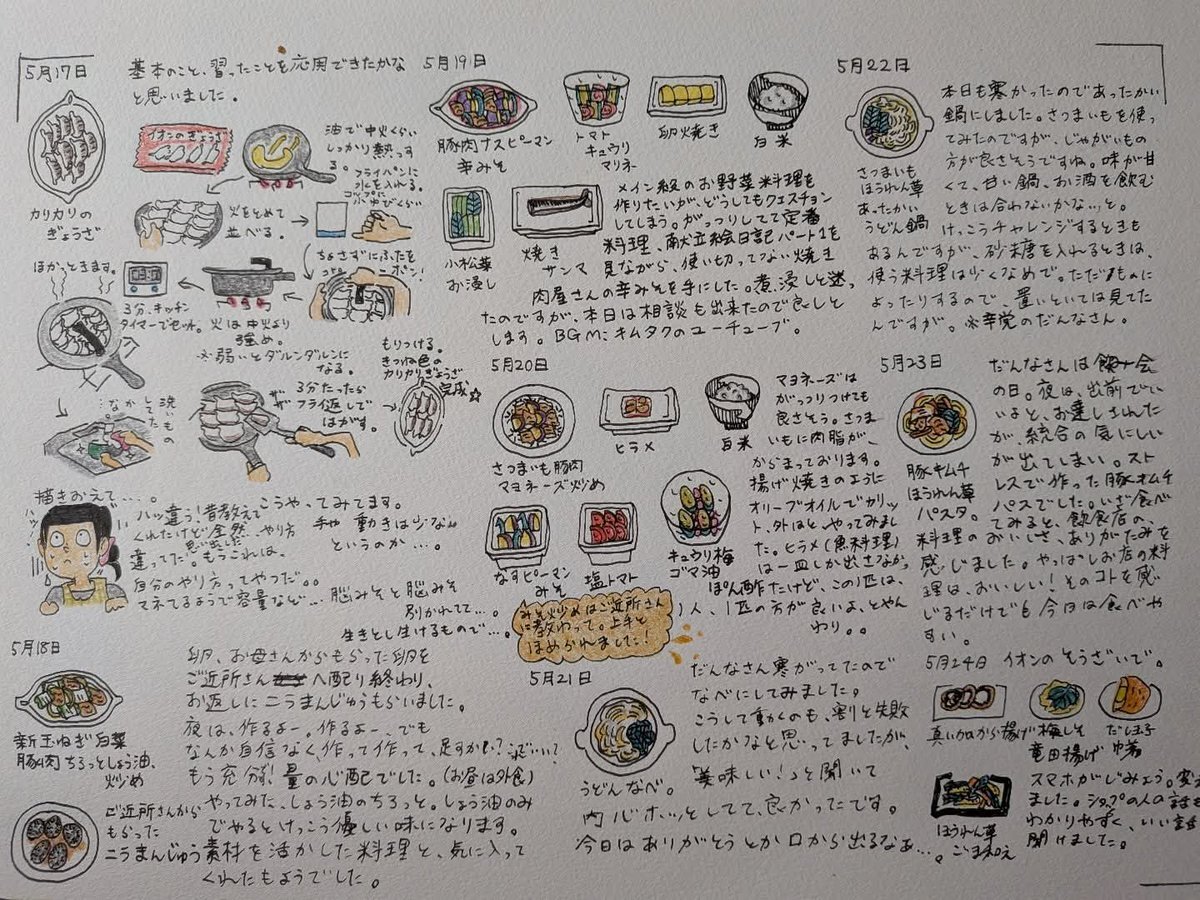 5月17日
基本のこと、習ったことを応用できたかな
と思いました。
カリカリの
ぎょうざ
イオンのぎょうざ
油で中火くらい
しっかり熱っす
る。
フライパンに
水を入れる。
コップに
火をとめて
並べる。
ちょさずにふたを
ほかっときます。
3分、キッチン
タイマーでセット。火は中火より
強め。
※弱いとダルンダルンに
なる。
3分たったら
フライ返しで
はがす。
もりつける。
きつね色の
カリカリぎょうざ
完成☆
洗いもの
なかして
描きおえて…。
ハッ
ハッ違う!昔教えて
くれたけど全然、やり方
違ってた。もうこれは、
自分のやり方ってやつだ。。
マネてるようで容量など…
こうやってみてます。
手や動きは少な
というのか…。
脳みそと脳みそ
別かれてて…。
生きとし生けるもので…。
5月18日
新玉ねぎ白菜
豚肉ちろっとしょう油、
炒め
ご近所さんから
もらった
ニラまんじゅう
卵、お母さんからもらった卵を
ご近所さんへ配り終わり、
お返しにニラまんじゅうもらいました。
夜は、作るよー、作るよー、でも
なんか自信なく作って作って、足すか!?
もう充分!量の心配でした。(お昼は外食)
やってみた、しょう油のちろっと。しょう油のみ
でやるとけっこう優しい味になります。
素材を活かした料理と、気に入って
くれたもようでした。
5月19日
豚肉ナスピーマン
辛みそ
トマト
キュウリ
マリネー
卵焼き
白米
小松菜
お浸し
焼き
サンマ
メイン級のお野菜料理を
作りたいが、どうしてもクエスチョン
してしまう。がっつりしてて定番
料理、献立絵日記パート1を
見ながら、使い切ってない焼き
肉屋さんの辛みそを手にした。煮浸しと迷っ
たのですが、本日は相談も出来たので良しと
します。BGM:キムタクのユーチューブ。
5月20日
さつまいも豚肉
マヨネーズ炒め
ヒラメ
白米
なすピーマン
みそ
塩トマト
キュウリ梅
ゴマ油
マヨネーズは
がっつりつけても
良さそう。さつま
いもに肉脂が、
からまっております。
揚げ焼きのように
オリーブオイルでカリッ
ト、外はと、やってみまし
た。ヒラメ(魚料理)
は一皿しか出さなかっ
ぽん酢だけど、この1匹は、
1人、1匹の方が良いよ、とやん
わり。。
みそ炒めはご近所さん
に教わって。上手と
ほめられました!
5月21日
うどんなべ。
だんなさん寒がってたので
なべにしてみました。
こうして動くのも、割と失敗
したかなと思ってましたが、
「美味しい!」と聞いて
内心ホッとしてて、良かったです。
今日はありがとうとか口から出るなぁ…。
5月22日
さつまいも
ほうれん草
あったかい
うどん鍋
本日も寒かったのであったかい
鍋にしました。さつまいもを使っ
てみたのですが、じゃがいもの
方が良さそうですね。味が甘
くて、甘い鍋、お酒を飲む
ときは合わないかな、っと。
けっこうチャレンジするときも
あるんですが、砂糖を入れるときは、
使う料理は少くなめで。ただ、ものに
よったりするので、置いといては見てた
んですが。※辛党のだんなさん。
5月23日
豚キムチ
ほうれん草
パスタ。
だんなさんは
の日。夜は、出前でい
いよと、お達しきんた
が、統合の気にしい
が出てしまい。スト
レスで作った豚キムチ
パスでした。いざ食べ
てみると、飲食店の、
料理のおいしさ、ありがたみを
感じました。やっぱしお店の料
理は、おいしい!そのコトを感
じるだけでも今日は食べや
すい。
5月24日 イオンのそうざいで。
真いかのから揚げ
梅しそ
竜田揚げ
だし玉子
ほうれん草
ごま和え
スマホがじみょう。変え
ました。ショップの人の話も
わかりやすく、いい話
聞けました。